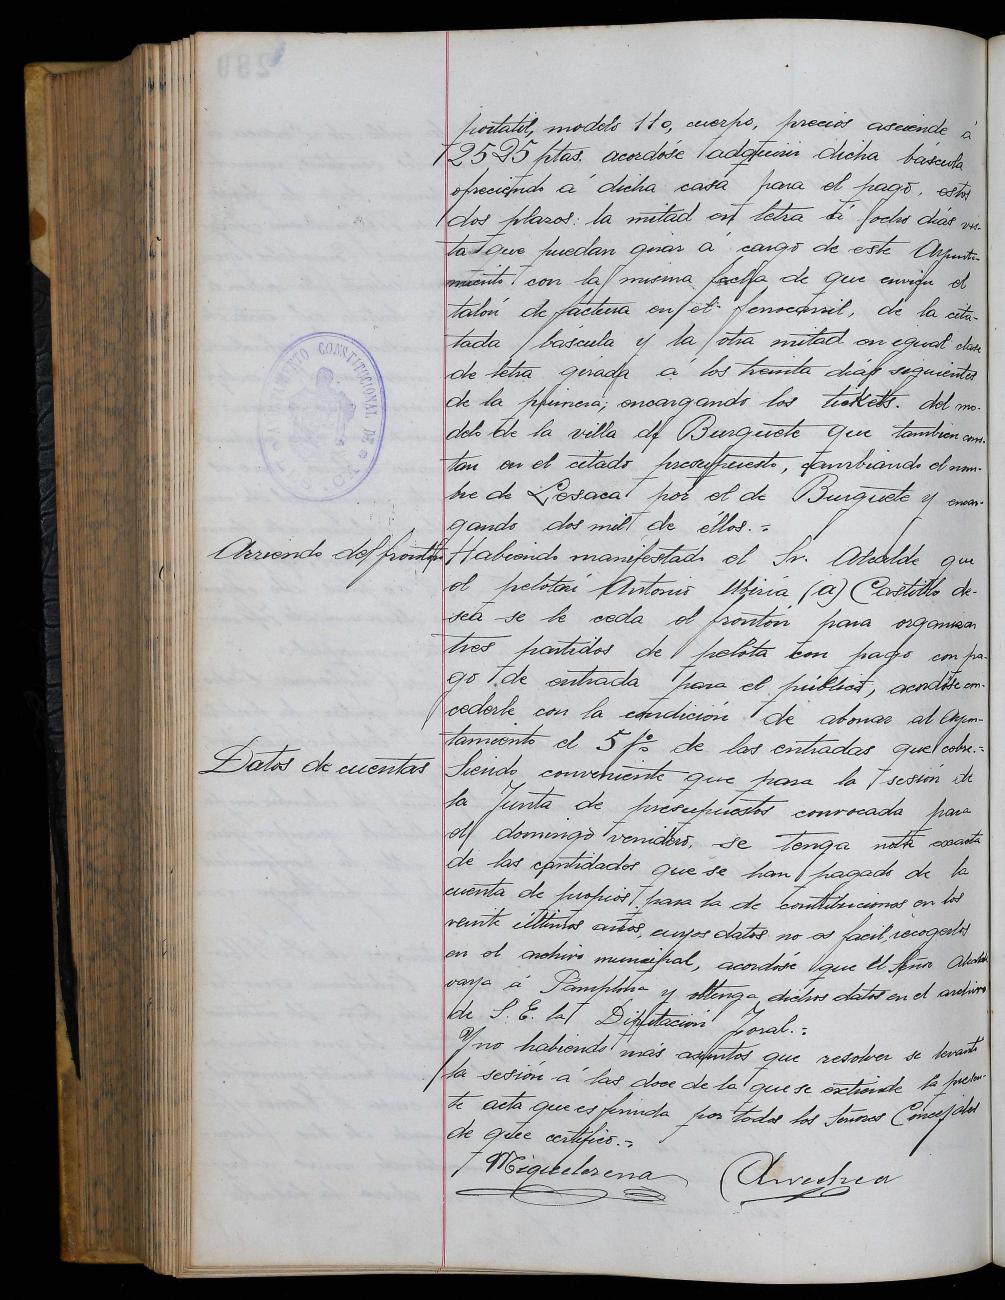 portatil, modelo 110, cuerpo, precios asciende á
2525 ptas, acordóse adquirir dicha báscula
ofreciendo á dicha casa para el pago, estos
dos plazos: la mitad en letra á ocho días vis-
ta que puedan girar á cargo de este Ayunta-
miento con la misma fecha de que envien el
talón de factura en el ferrocarril, de la cita-
tada báscula y la otra mitad en igual clase
de letra girada a los treinta días siguientes
de la primera; encargando los tickets. del mo-
delo de la villa de Burguete que tambien cons-
tan en el citado presupuesto, cambiando el nom-
bre de Lesaca por el de Burguete y encar-
gando dos mil de éllos.-
Arriendo del frontón
Habiendo manifestado el Sr. Alcalde que
el pelotari Antonio Ubiria (a) Castillo de-
sea se le ceda el frontón para organizar
tres partidos de pelota con pago con pa-
go de entrada para el público, acordóse con-
cederle con la condición de abonar al Ayun-
tamiento el 5 p% de las entradas que cobre.-
Datos de cuentas
Siendo conveniente que para la sesión de
la Junta de presupuestos convocada para
el domingo venidero, se tenga nota exacta
de las cantidades que se han pagado de la
cuenta de propios para la de contribuciones en los
veinte últimos años, cuyos datos no es facil, recogerlos
en el archivo municipal, acordóse que el Señor Alcalde
vaya á Pamplona y obtenga dichos datos en el archivo
de S. E. la Diputación Foral.-
Y no habiendo más asuntos que resolver se levantó
la sesión á las doce de la que se extiende la presen-
te acta que es firmada por todos los Señores Concejales
de que certifico.-
Miquelorena
AYUNTAMIENTO CONSTITUCIONAL DE